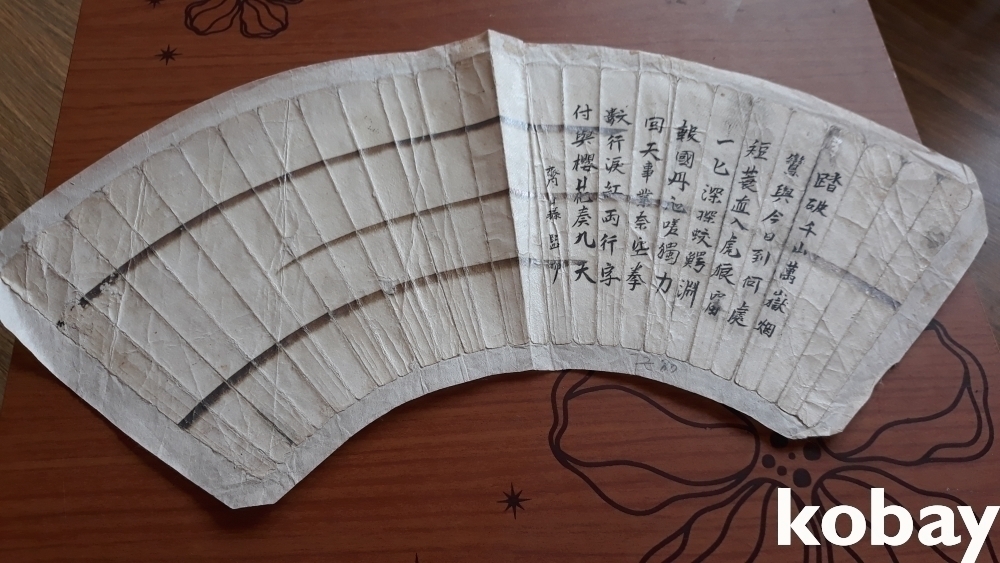 踏破千山萬嶽烟
鸞與今日到何處
短蓑直入虎狼窟
一匕深探蛟鰐淵
報國丹心嗟獨力
回天事業奈空拳
數行淚紅両行字
付與櫻花奏九天
齊藤監物
kobay